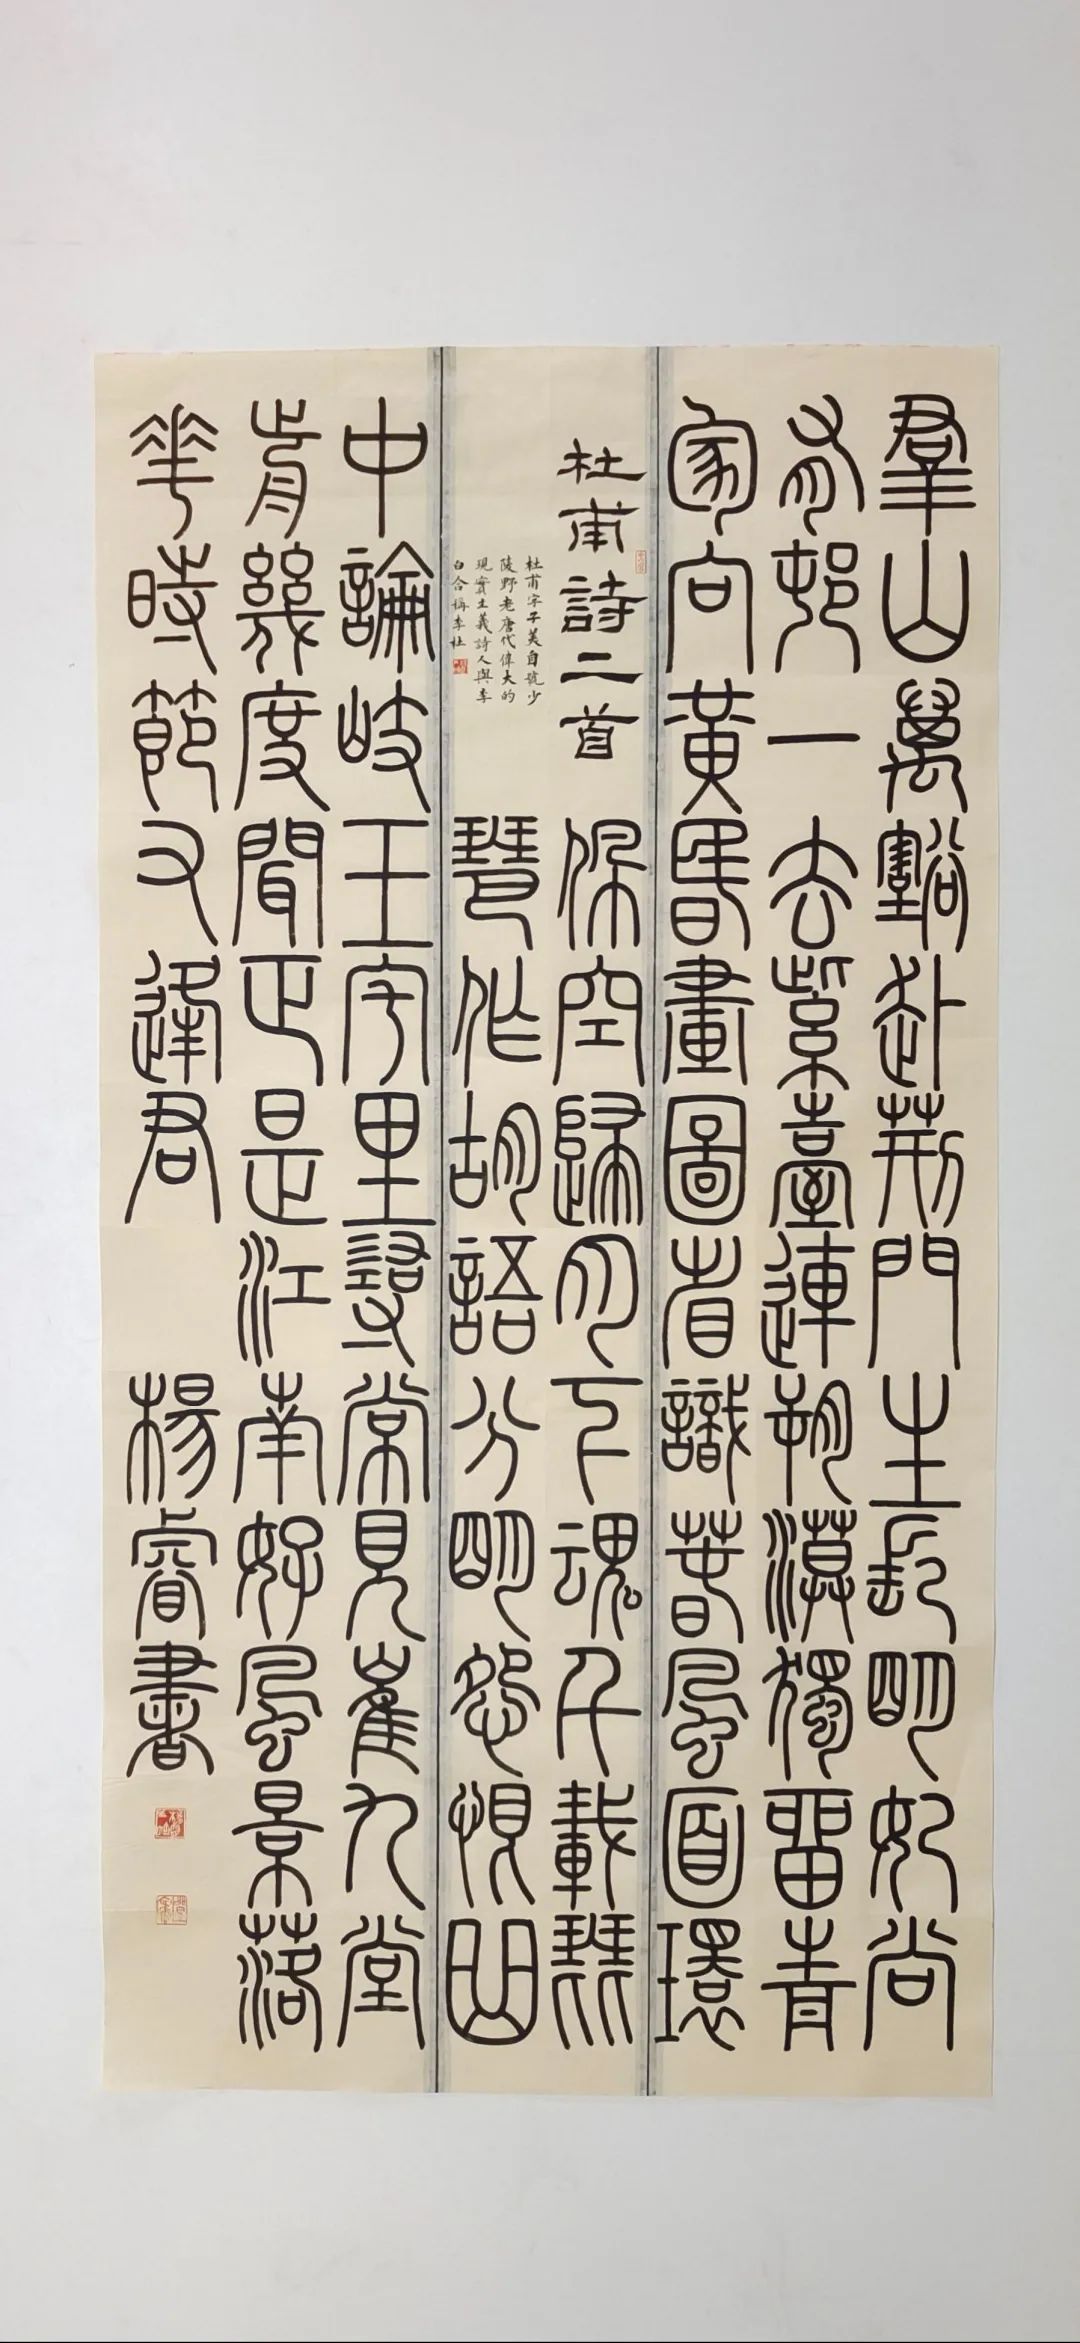 羣山萬壑赴荊門生長明妃尚
有邨一去紫臺連朔漠獨留青
冢向黃昏畫圖省識春風面環
杜甫詩二首
佩空歸月下魂千載琵
杜甫字子美自號少
陵野老唐代偉大的
現實主義詩人與李
白合稱李杜
琶作胡語分明怨恨曲
中論岐王宅里尋常見崔九堂
前幾度聞正是江南好風景落
華時節又逢君
楊睿書